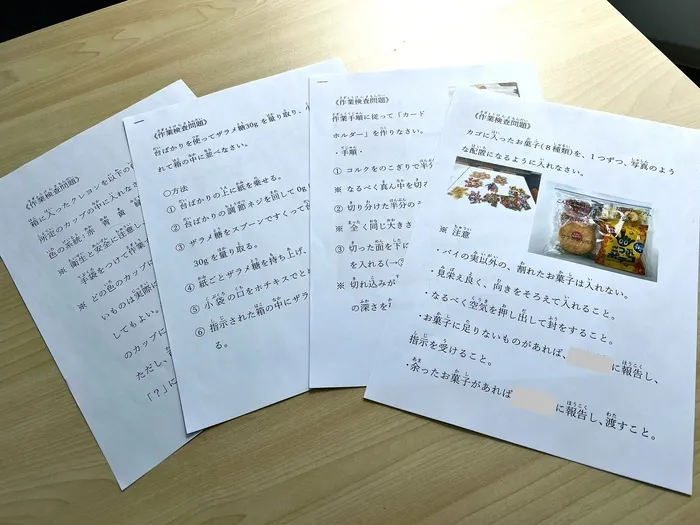 《作業検査問題》
箱に入ったクレヨンを以下の
所定のカップの中に入れなさ
色の系統：赤 青 黄
※ 衛生と安全に注意し
手袋をつけて作業
※ どの色のカップに
いものは実際に
してもよい。
のカップに
ただし、
「？」に
《作業検査問題》
台ばかりを使ってザラメ糖30gを量り取り、
れて箱の中に並べなさい。
○方法
① 台ばかりの上に紙を乗せる。
② 台ばかりの調節ネジを回して0g
③ ザラメ糖をスプーンですくって台
30gを量り取る。
④ 紙ごとザラメ糖を持ち上げ、
⑤ 小袋の口をホチキスでとと
⑥ 指示された箱の中にザラ
る。
《作業検査問題》
作業手順に従って「カード
ホルダー」を作りなさい。
・手順・
① コルクをのこぎりで半分
※ なるべく真ん中を切る
② 切り分けた半分の
※ 全く同じ大きさ
③ 切った面を下に
を入れる（→
※ 切れ込みが
の深さを
《作業検査問題》
カゴに入ったお菓子(８種類)を、１つずつ、写真のよう
な配置になるように入れなさい。
※ 注意
・パイの実以外の、割れたお菓子は入れない。
・見栄え良く、向きをそろえて入れること。
・なるべく空気を押し出して封をすること。
・お菓子に足りないものがあれば、
に報告し、
指示を受けること。
・余ったお菓子があれば
に報告し、渡すこと。